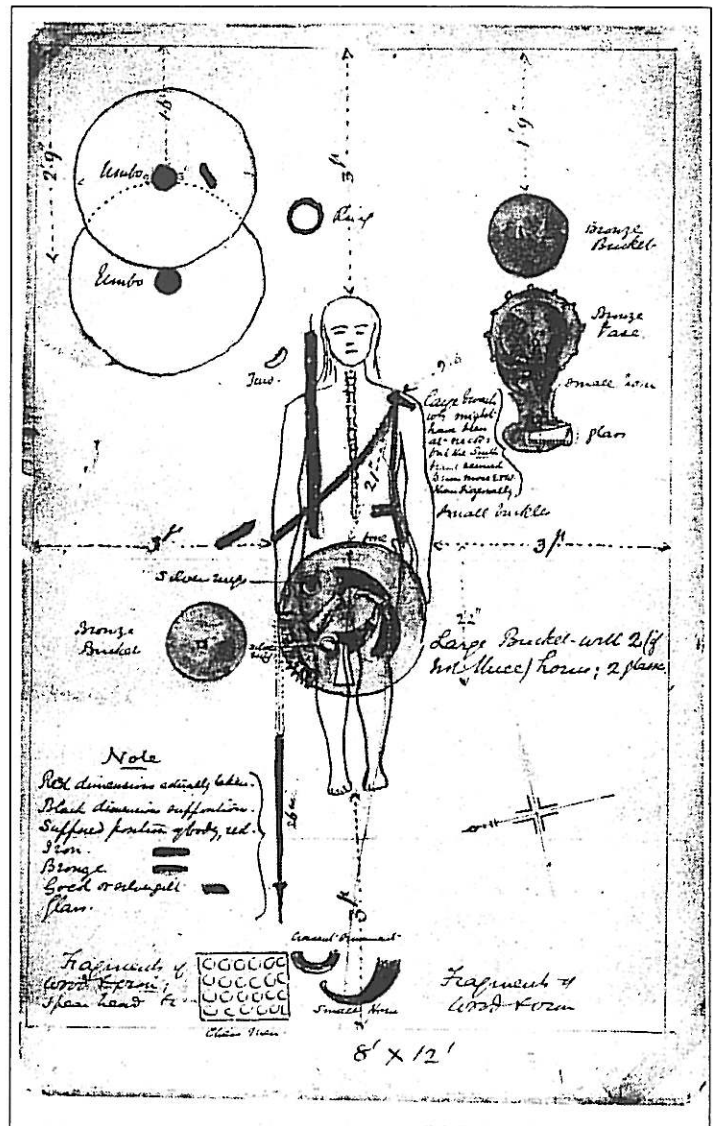 2'9"
1'6"
3 ft
1'9"
Umbo
Umbo
Ring
Bronze
Bucket
Bronze
Vase
small horn
glass
Large brooch
wh. might
have been
but the
seemed
more
than diagonally
21"
small buckles
3 ft
3 ft
Silver cups
Bronze
Bucket
22"
Large Bucket with 2 (if
not three) horns; 2 glasses
Note
Red dimensions actually taken.
Black dimensions supposition.
Supposed position of body, red.
Iron.
Bronze
Gold or silver gilt
Glass.
3 ft
Crescent Ornament
Fragments of
wood & iron;
spear head &c
Small Horn
Chess Men
Fragments of
wood & iron
8' X 12'